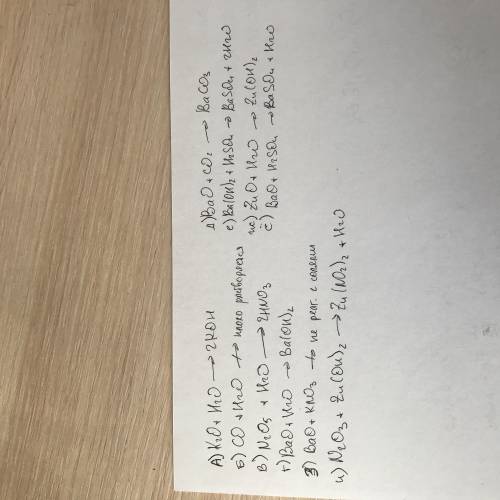 А) K2O + H2O → 2KOH
Б) CO + H2O ↛ плохо растворяется
В) N2O5 + H2O → 2HNO3
Г) BaO + H2O → Ba(OH)2
З) BaO + KNO3 ↛ не реаг. с солями
и) N2O3 + Zn(OH)2 → Zn(NO2)2 + H2O
д) BaO + CO2 → BaCO3
е) Ba(OH)2 + H2SO4 → BaSO4 + 2H2O
ж) ZnO + H2O → Zn(OH)2
ё) BaO + H2SO4 → BaSO4 + H2O